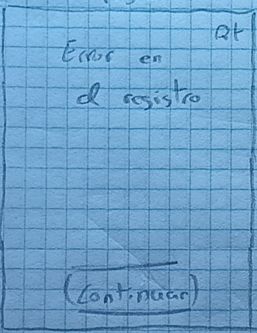 Error en
el registro
(Continuar)